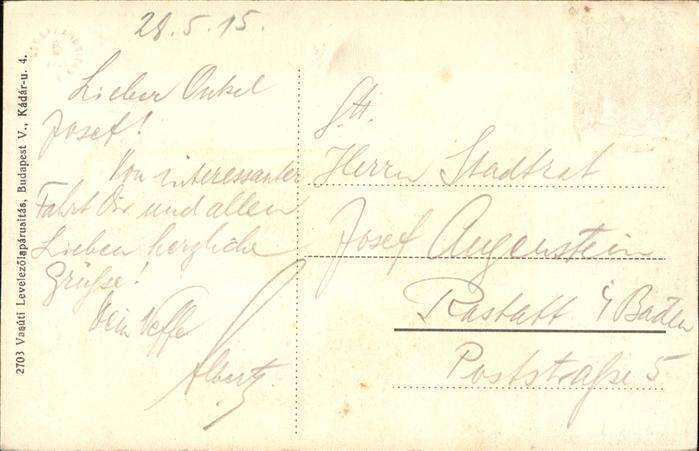 28.5.15.
Lieber Onkel
Josef!
Von interessanter
Fahrt Dir und allen
Lieben herzliche
Grüße!
Dein Neffe
Albert
S.H.
Herrn Stadtrat
Josef Augenstein
Rastatt i/Baden
Poststraße 5
2703 Vasúti Levelezőlapárusitás, Budapest V., Kádár-u. 4.